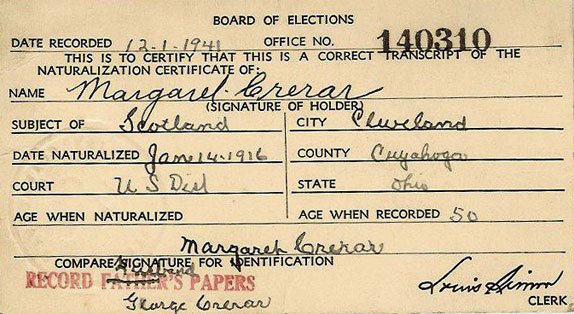 BOARD OF ELECTIONS
DATE RECORDED 12-1-1941 OFFICE NO. 140310
THIS IS TO CERTIFY THAT THIS IS A CORRECT TRANSCRIPT OF THE
NATURALIZATION CERTIFICATE OF:
NAME Margaret Crerar
(SIGNATURE OF HOLDER)
SUBJECT OF Scotland CITY Cleveland
DATE NATURALIZED Jan 14-1916 COUNTY Cuyahoga
COURT U S Dist STATE Ohio
AGE WHEN NATURALIZED AGE WHEN RECORDED 50
Margaret Crerar
COMPARE SIGNATURE FOR IDENTIFICATION
Husband
RECORD FATHER'S PAPERS
George Crerar
Louis Simon
CLERK